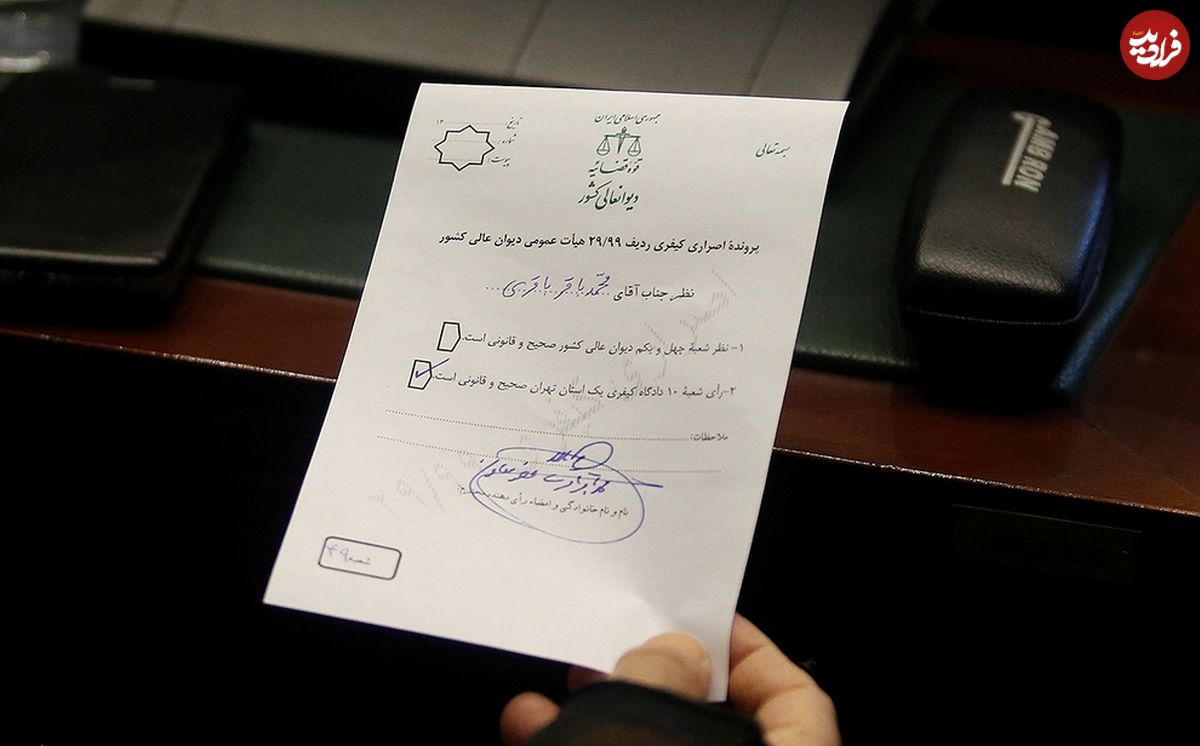 فرارو
بسمه تعالی
جمهوری اسلامی ایران
قوهٔ قضائیه
دیوانعالی کشور
تاریخ: ۱۳
شماره:
پیوست:
پروندهٔ اصراری کیفری ردیف ۲۹/۹۹ هیأت عمومی دیوان عالی کشور
نظر جناب آقای محمد باقر باقری
۱- نظر شعبهٔ چهل و یکم دیوان عالی کشور صحیح و قانونی است.
۲-رأی شعبهٔ ۱۰ دادگاه کیفری یک استان تهران صحیح و قانونی است.
ملاحظات:
نام و نام خانوادگی و امضاء رأی دهنده
شعبه ۴۹